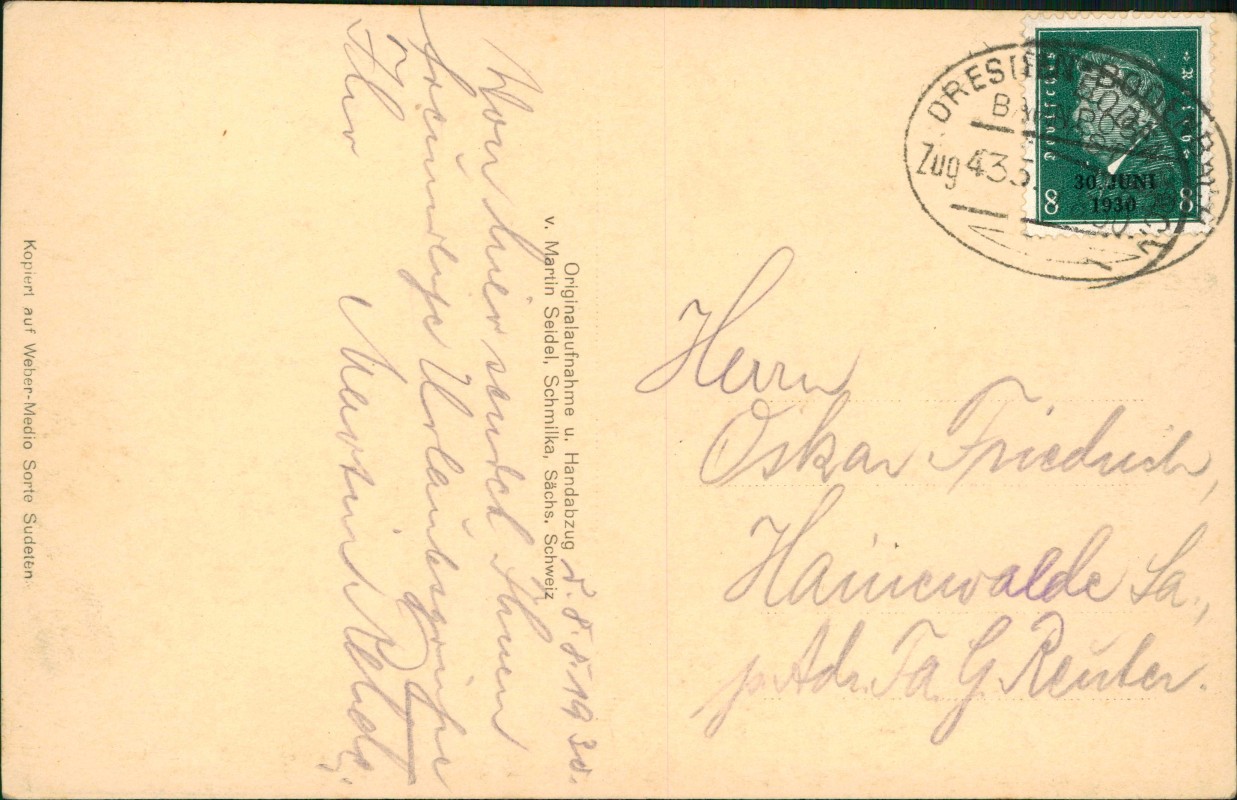 d. 8. 8. 1930.
Von hier sendet Ihnen
freundliche Urlaubsgrüße
Ihr Martin
Originalaufnahme u. Handabzug
v. Martin Seidel, Schmilka, Sächs. Schweiz
Kopiert auf Weber-Medio Sorte Sudeten
DRESDEN-BODENBACH
BAHNPOST
Zug 433
Deutsches Reich
30. JUNI
1930
8 8
Herrn
Oskar Friedrich,
Hainewalde Sa.,
p. Adr. Fa. G. Reuter.